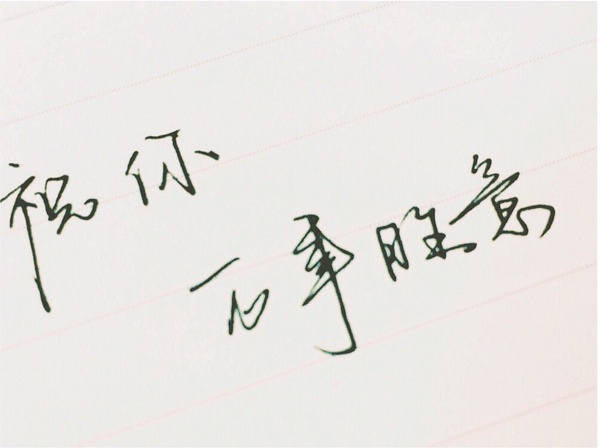 祝你
万事胜意